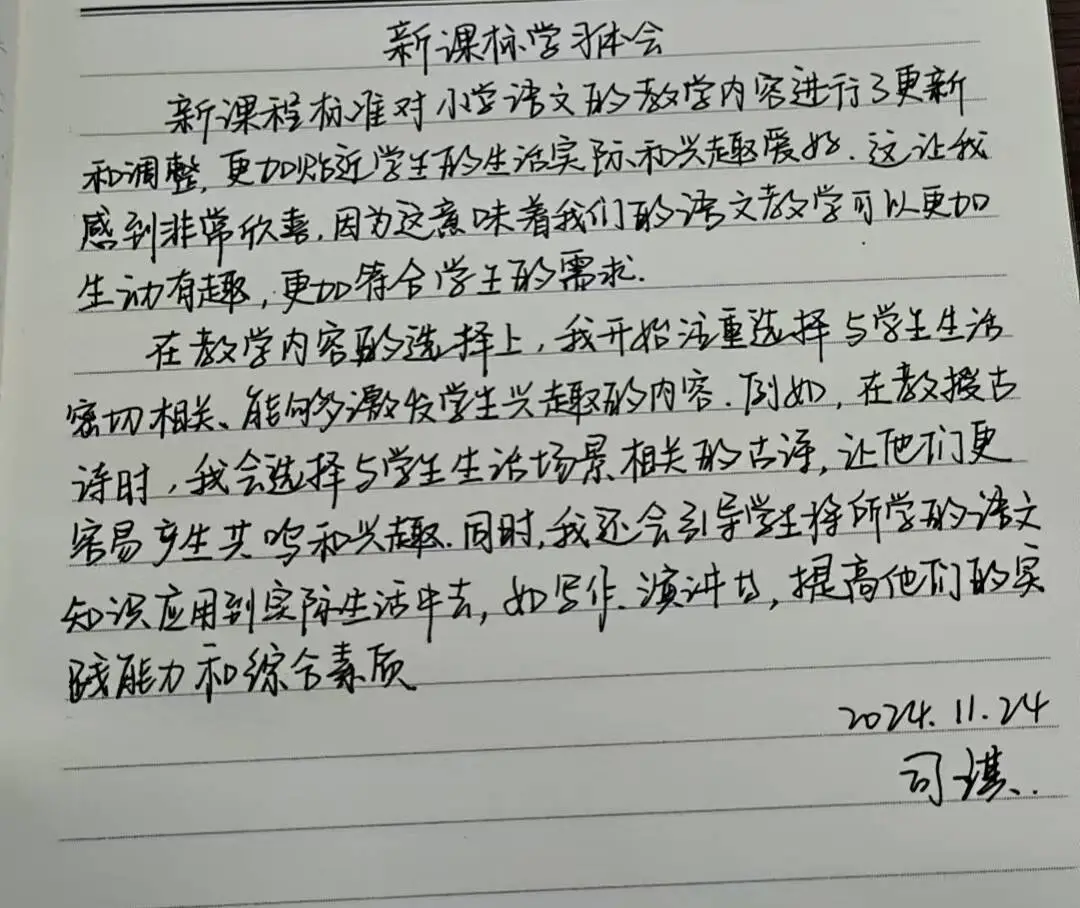 新课标学习体会
新课程标准对小学语文的教学内容进行了更新
和调整,更加贴近学生的生活实际和兴趣爱好.这让我
感到非常欣喜.因为这意味着我们的语文教学可以更加
生动有趣,更加符合学生的需求.
在教学内容的选择上,我开始注重选择与学生生活
密切相关、能够激发学生兴趣的内容.例如,在教授古
诗时,我会选择与学生生活场景相关的古诗,让他们更
容易产生共鸣和兴趣.同时,我还会引导学生将所学的语文
知识应用到实际生活中去,如写作.演讲等,提高他们的实
践能力和综合素质
2024.11.24
司琪.